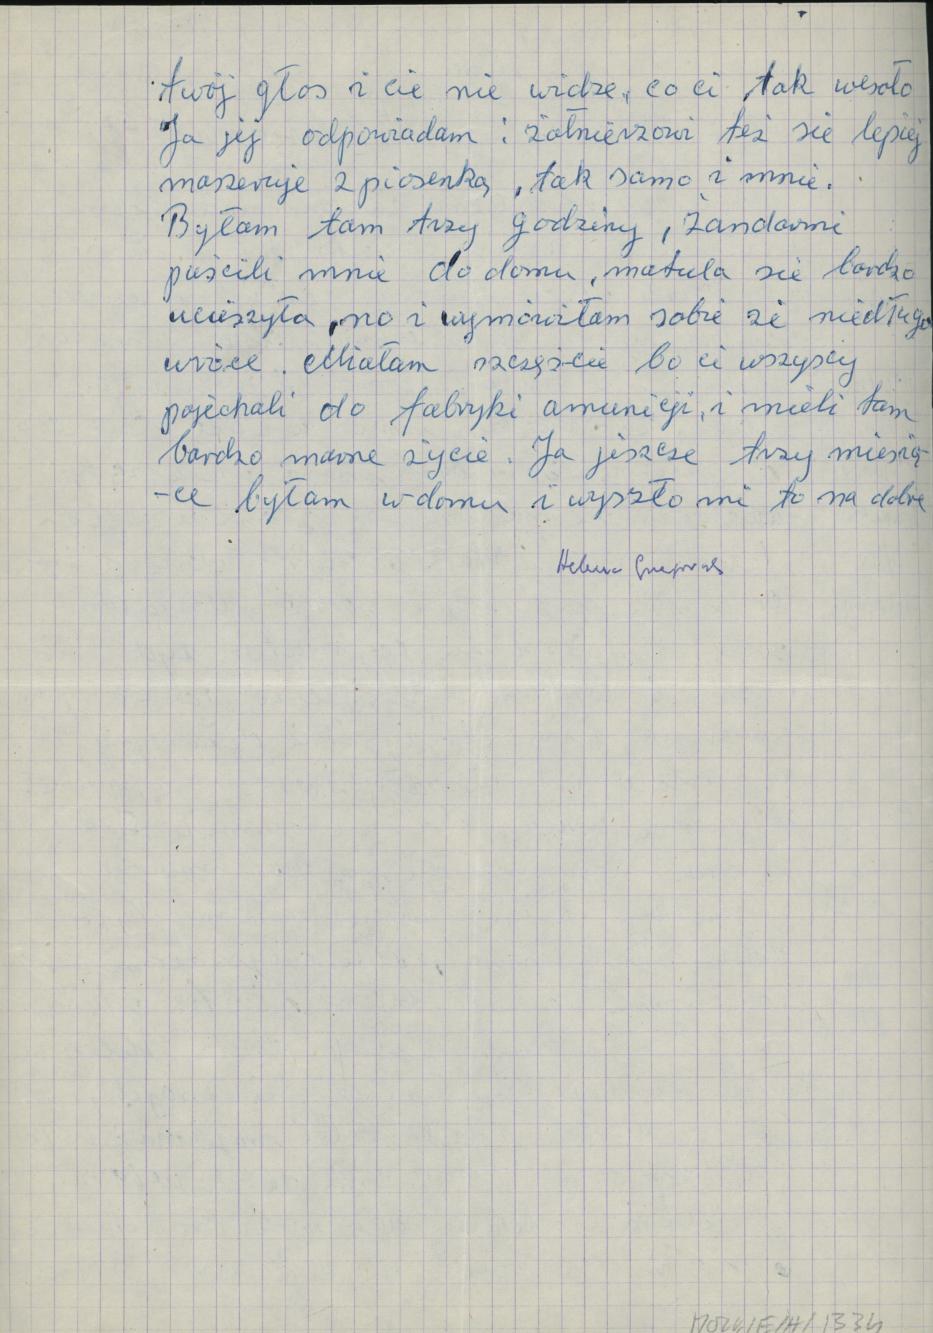 twój głos i cie nie widze, co ci tak wesoło
Ja jej odpowiadam : żołnierzowi też sie lepiej
maszeruje z piosenką, tak samo i mnie.
Byłam tam trzy godziny, Żandarmi
puścili mnie do domu, matula sie bardzo
ucieszyła, no i wymówiłam sobie że niedługo
wróce. Miałam szczęście bo ci wszyscy
pojechali do fabryki amunicji, i mieli tam
bardzo marne życie. Ja jeszcze trzy miesią-
-ce byłam w domu i wyszło mi to na dobre
Helena